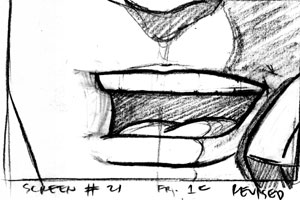 SCREEN # 21 FR. 1C REVISED